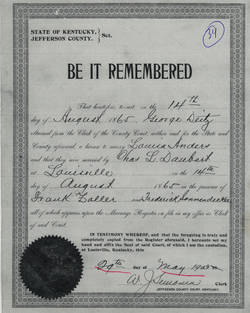 STATE OF KENTUCKY,
JEFFERSON COUNTY. } Sct.
39
BE IT REMEMBERED
That heretofore, to-wit: on the 14th
day of August 1865 George Deitz
obtained from the Clerk of the County Court, within and for the State and
County aforesaid, a license to marry Louisa Anders
and that they were married by Chas L. Daubert
at Louisville on the 14th
day of August 1865 in the presence of
Frank Zoller and Frederick
all of which appears upon the Marriage Register on file in my office as Clerk
of said Court.
IN TESTIMONY WHEREOF, and that the foregoing is truly and
completely copied from the Register aforesaid, I hereunto set my
hand and affix the Seal of said Court, of which I am the custodian,
at Louisville, Kentucky, this
29th day of May
W. J. Clerk
JEFFERSON COUNTY COURT, KENTUCKY.